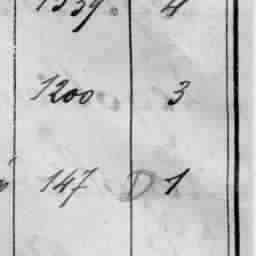 1339. 4
1200 3
147 D 1